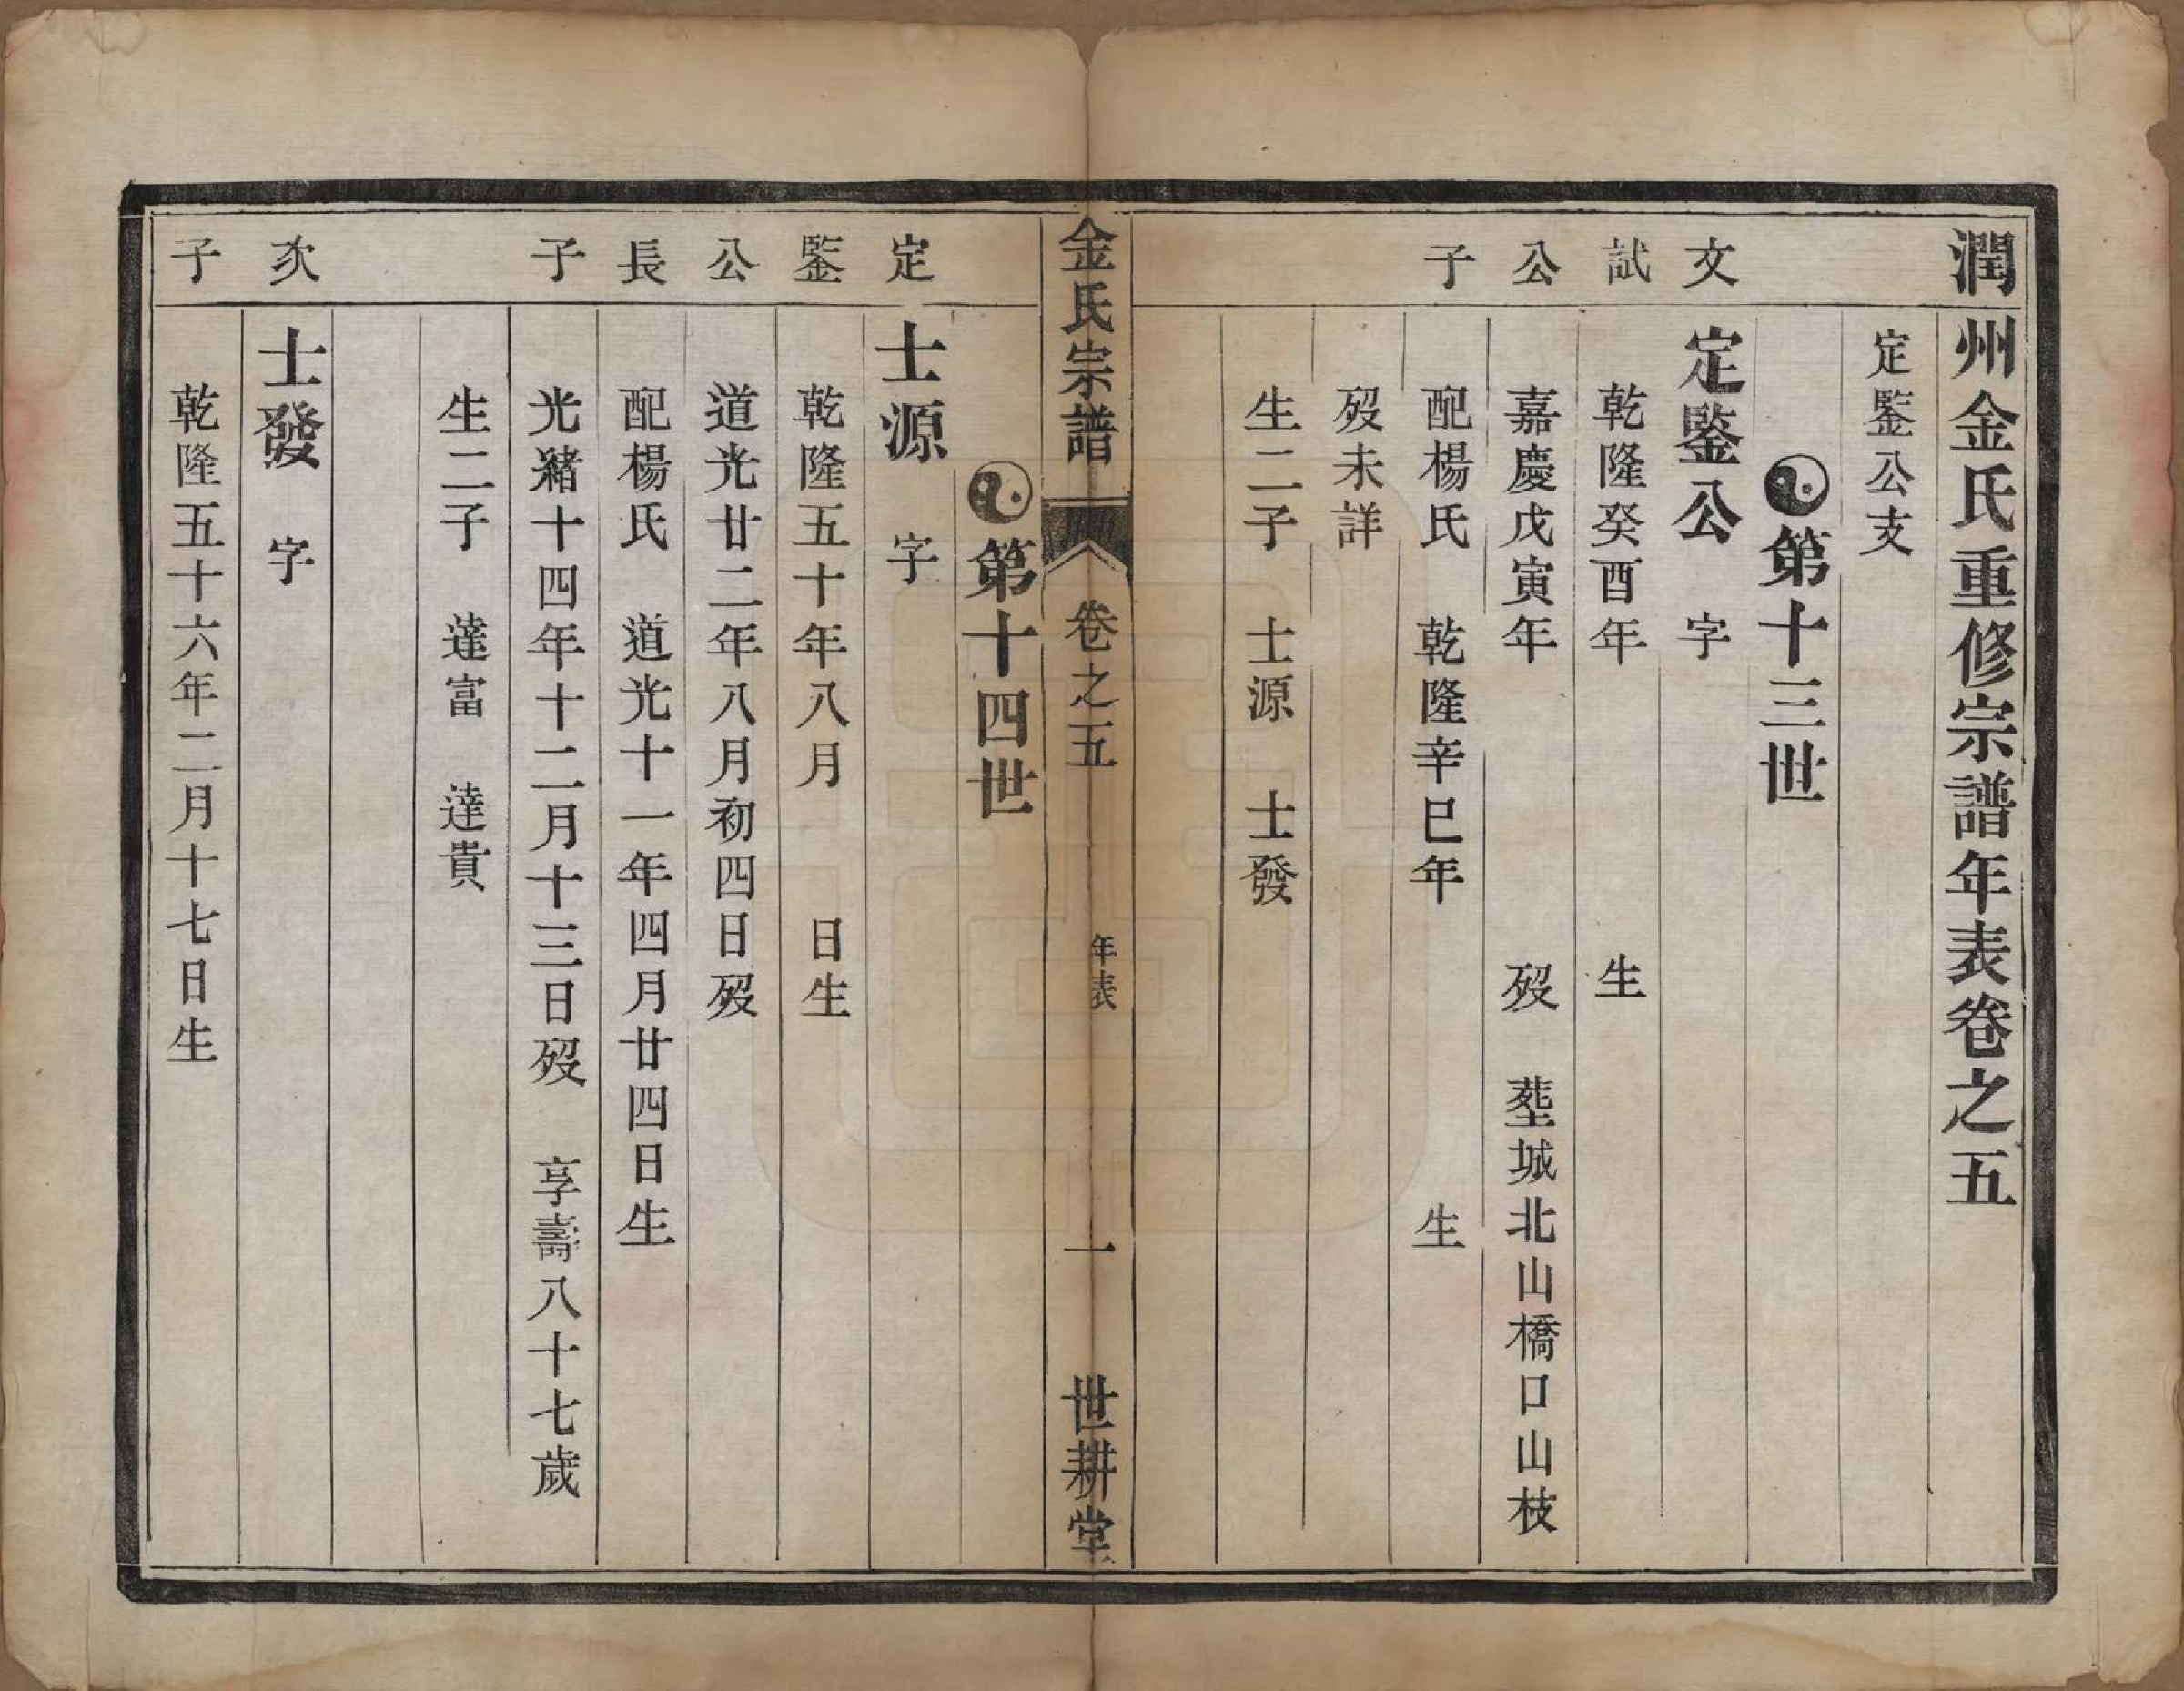 潤州金氏重修宗譜年表卷之五
定鑒公支
第十三世
文試公子
定鑒公　字
乾隆癸酉年　生
嘉慶戊寅年　歿　塟城北山橋口山枝
配楊氏　乾隆辛巳年　生
歿未詳
生二子　士源　士發
金氏宗譜　卷之五　年表　一　世耕堂
第十四世
定鑒公長子
士源　字
乾隆五十年八月　日生
道光廿二年八月初四日歿
配楊氏　道光十一年四月廿四日生
光緒十四年十二月十三日歿　享壽八十七歲
生二子　達富　達貴
次子
士發　字
乾隆五十六年二月十七日生